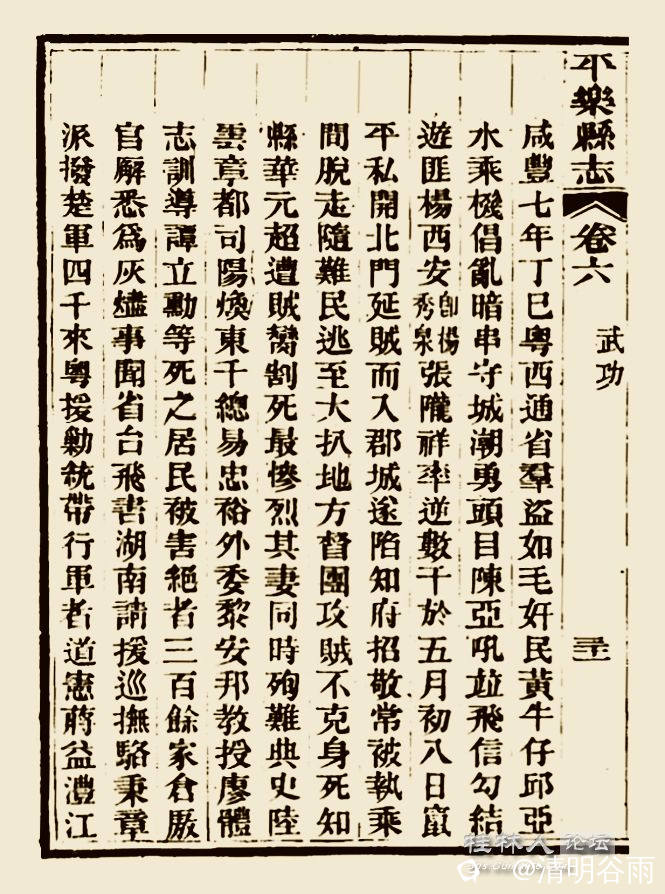 平樂縣志 卷六 武功 三十一
咸豐七年丁巳粵西通省羣盜如毛奸民黃牛仔邱亞
水乘機倡亂暗串守城潮勇頭目陳亞吼並飛信勾結
遊匪楊西安卽楊秀泉張隴祥率逆數千於五月初八日竄
平私開北門延賊而入郡城遂陷知府招敬常被執乘
間脫走隨難民逃至大扒地方督團攻賊不克身死知
縣華元超遭賊臠割死最慘烈其妻同時殉難典史陸
雲章都司陽煥東千總易忠裕外委黎安邦教授廖體
志訓導譚立勳等死之居民被害絕者三百餘家倉厫
官廨悉為灰燼事聞省台飛書湖南請援巡撫駱秉章
派撥楚軍四千來粵援勦統帶行軍者道憲蔣益澧江
桂林人论坛
@清明谷雨